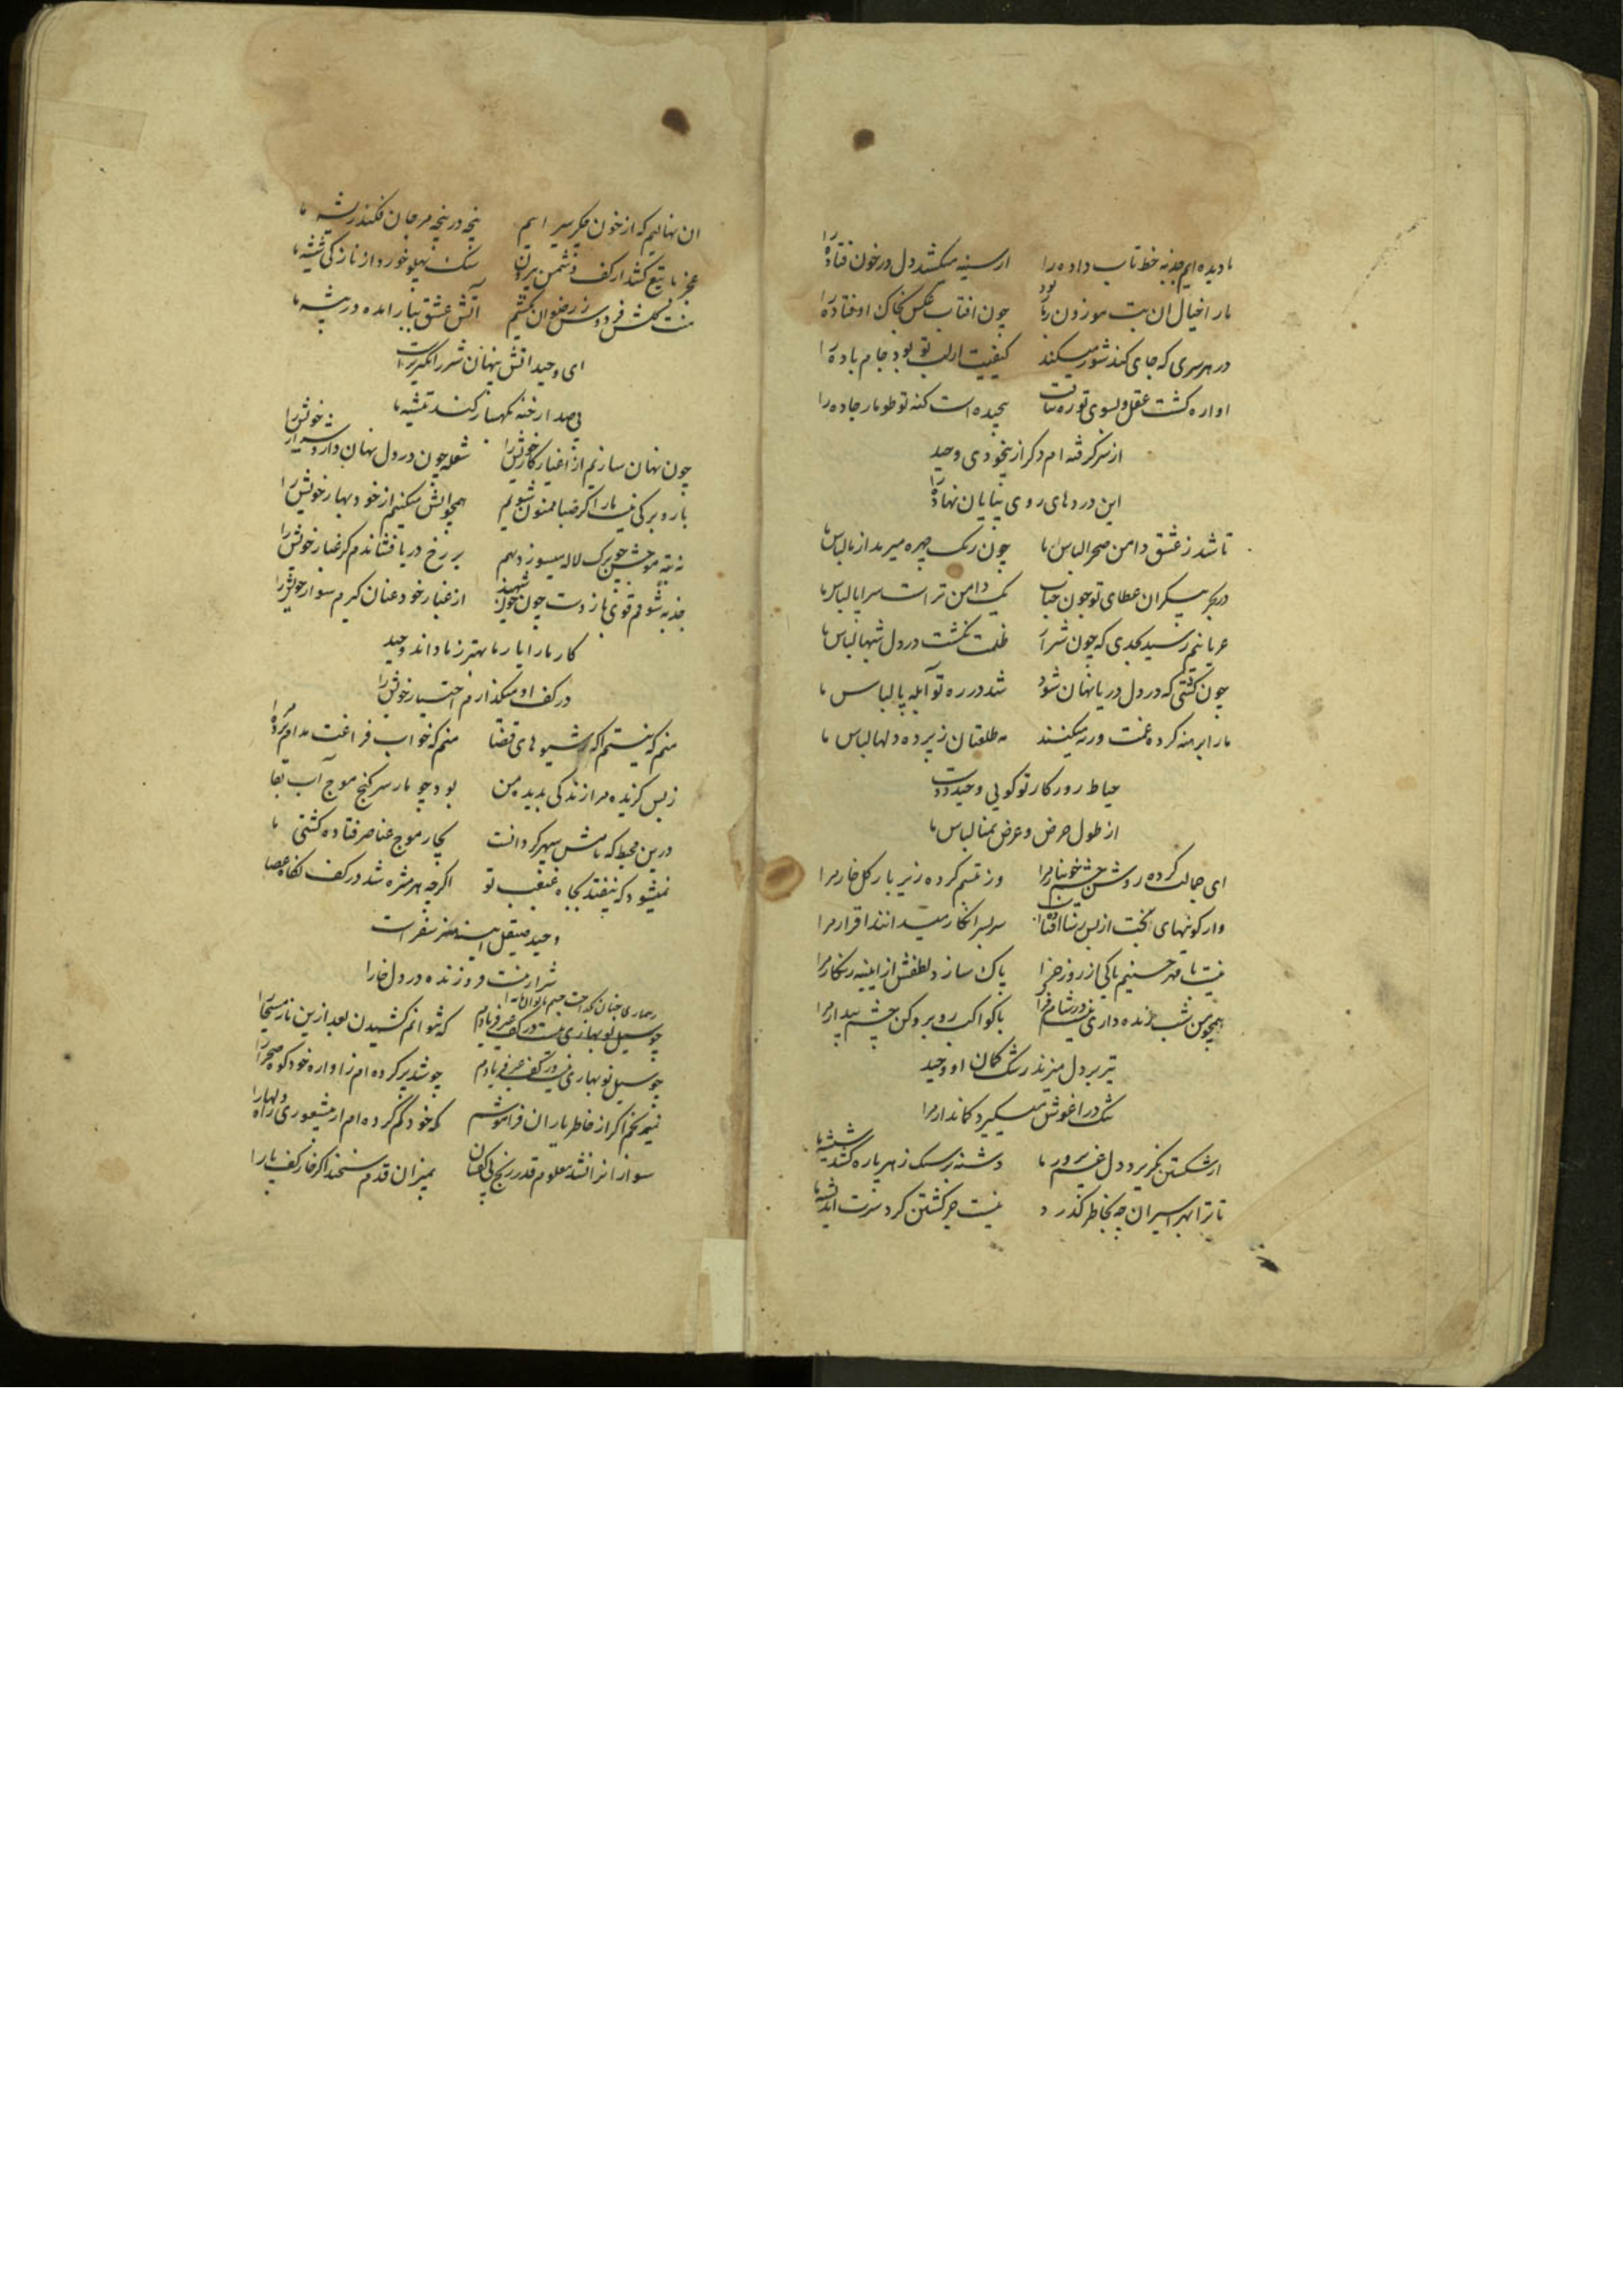 ما دیده ایم جذبه خط تاب داده را از سینه میکشد دل در خون فتاده را
ما را خیال ان بت موزون ربا بود چون افتاب عکس بخاک اوفتاده را
در هر سری که جای کند شور میکند کیفیت از لب تو بود جام باده را
اواره گشت عقل و بسوی تو ره نیافت پیچیده است کنه تو طومار جاده را
از سر گرفته ام دگر از بیخودی وحید
این درد های روی به پایان نهاده را
تا شد ز عشق دامن صحرا لباس ما چون رنگ چهره میرمد از ما لباس ما
در بحر بیکران عطای تو چون حباب یک دامن تر است سراپا لباس ما
عریانیم رسید بحدی که چون شرار ظلمت نگشت در دل شبها لباس ما
چون کشتی که در دل دریا نهان شود شد در ره تو آبله پا لباس ما
ما را برهنه کرده غمت ورنه میکنند مه طلعتان ز پرده دلها لباس ما
خیاط روزکار تو کویی وحید دوخت
از طول حرص و عرض تمنا لباس ما
ای جمالت کرده روشن چشم خونبار مرا وز تبسم کرده زیر بار کل خار مرا
واژکونیهای بخت از بس زپا سر بسر انکار میدانند اقرار مرا
نیست با مهر حسنیم باکی از روز جزا پاک سازد لطفش از ایینه زنکار مرا
همچو من شب زنده داری نیست در شام فراق با کواکب روبرو کن چشم بیدار مرا
تیر بر دل میزند رشک کمان او وحید
تنک در اغوش میکیرد کماندار مرا
از شکستن نکریزد دل غم پرور ما دشنه بر سنک زند هر پاره شیشه ما
تا ترا بهر اسیران چه بخاطر گذرد نیست جز کشتن کرد سرت اندیشه ما
ان نهالیم که از خون جکر سیرابیم پنجه در پنجه مرجان فکند ریشه ما
عجز ما تیغ کشد از کف دشمن بیرون سنک پهلو خورد از نازکی شیشه ما
منت کلشن فردوس ز رضوان نکشیم آتش عشق بتان آمده در بیشه ما
ای وحید اتش پنهان شرر انگیزتر است
بیصدا رخنه بکهسار کند تیشه ما
چون نهان سازیم از اغیار کار خویش را شعله چون در دل نهان دارد شرار خویش را
بار و برکی نیست ما را کر صبا ممنون شویم همچو اتش میکنیم از خود بهار خویش را
چون برک لاله میسوزد بهم بر رخ دریا فشاندم کر غبار خویش را
جذبه شوقم قوی بازوست چون از غبار خود عنان کیرم سوار خویش را
کار ما را یار ما بهتر ز ما داند وحید
در کف او میکذارم اختیار خویش را
منم که نیستم اکه ز شیوه های قضا منم که خواب فراغت مدام برده مرا
ز بس کزیده مرا زندکی بدیده من بود چو مار سر کنج موج آب بقا
درین محیط که نامش سپهر کردانست بچار موج عناصر فتاده کشتی ما
نمیشود که نیفتد بچاه غبغب تو اکرچه هر مژه شد در کف نکاه عصا
وحید صیقل ایینه هنر سفر است
شرار نیست فروزنده در دل خارا
که نتوانم کشیدن بعد ازین ناز مسیحا را
چو سیل نوبهاری نیست در کف جز فریادم
چو سیل نوبهاری نیست در کف جز فریادم چو شد پر کرده ام ز اوازه خود کوه و صحرا را
نیم غمکین اکر از خاطر یاران فراموشم که خود گم کرده ام از بیشعوری راه دلها را
سواران را نشد معلوم قدر رنج بی کفشان بمیزان قدم سنجند اکر خار کف پا را